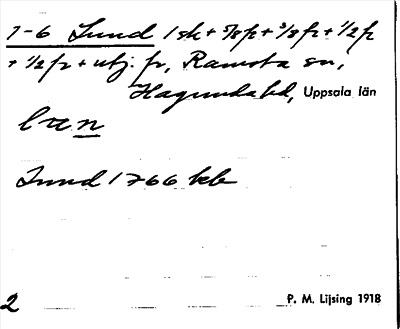 1-6 Lund 1 sk + 5/8 fr + 3/8 fr + 1/2 fr
+ 1/2 fr + utj. fr, Ramsta sn,
Hagunda hd, Uppsala län
Lund 1766 kb
2 P. M. Lijsing 1918